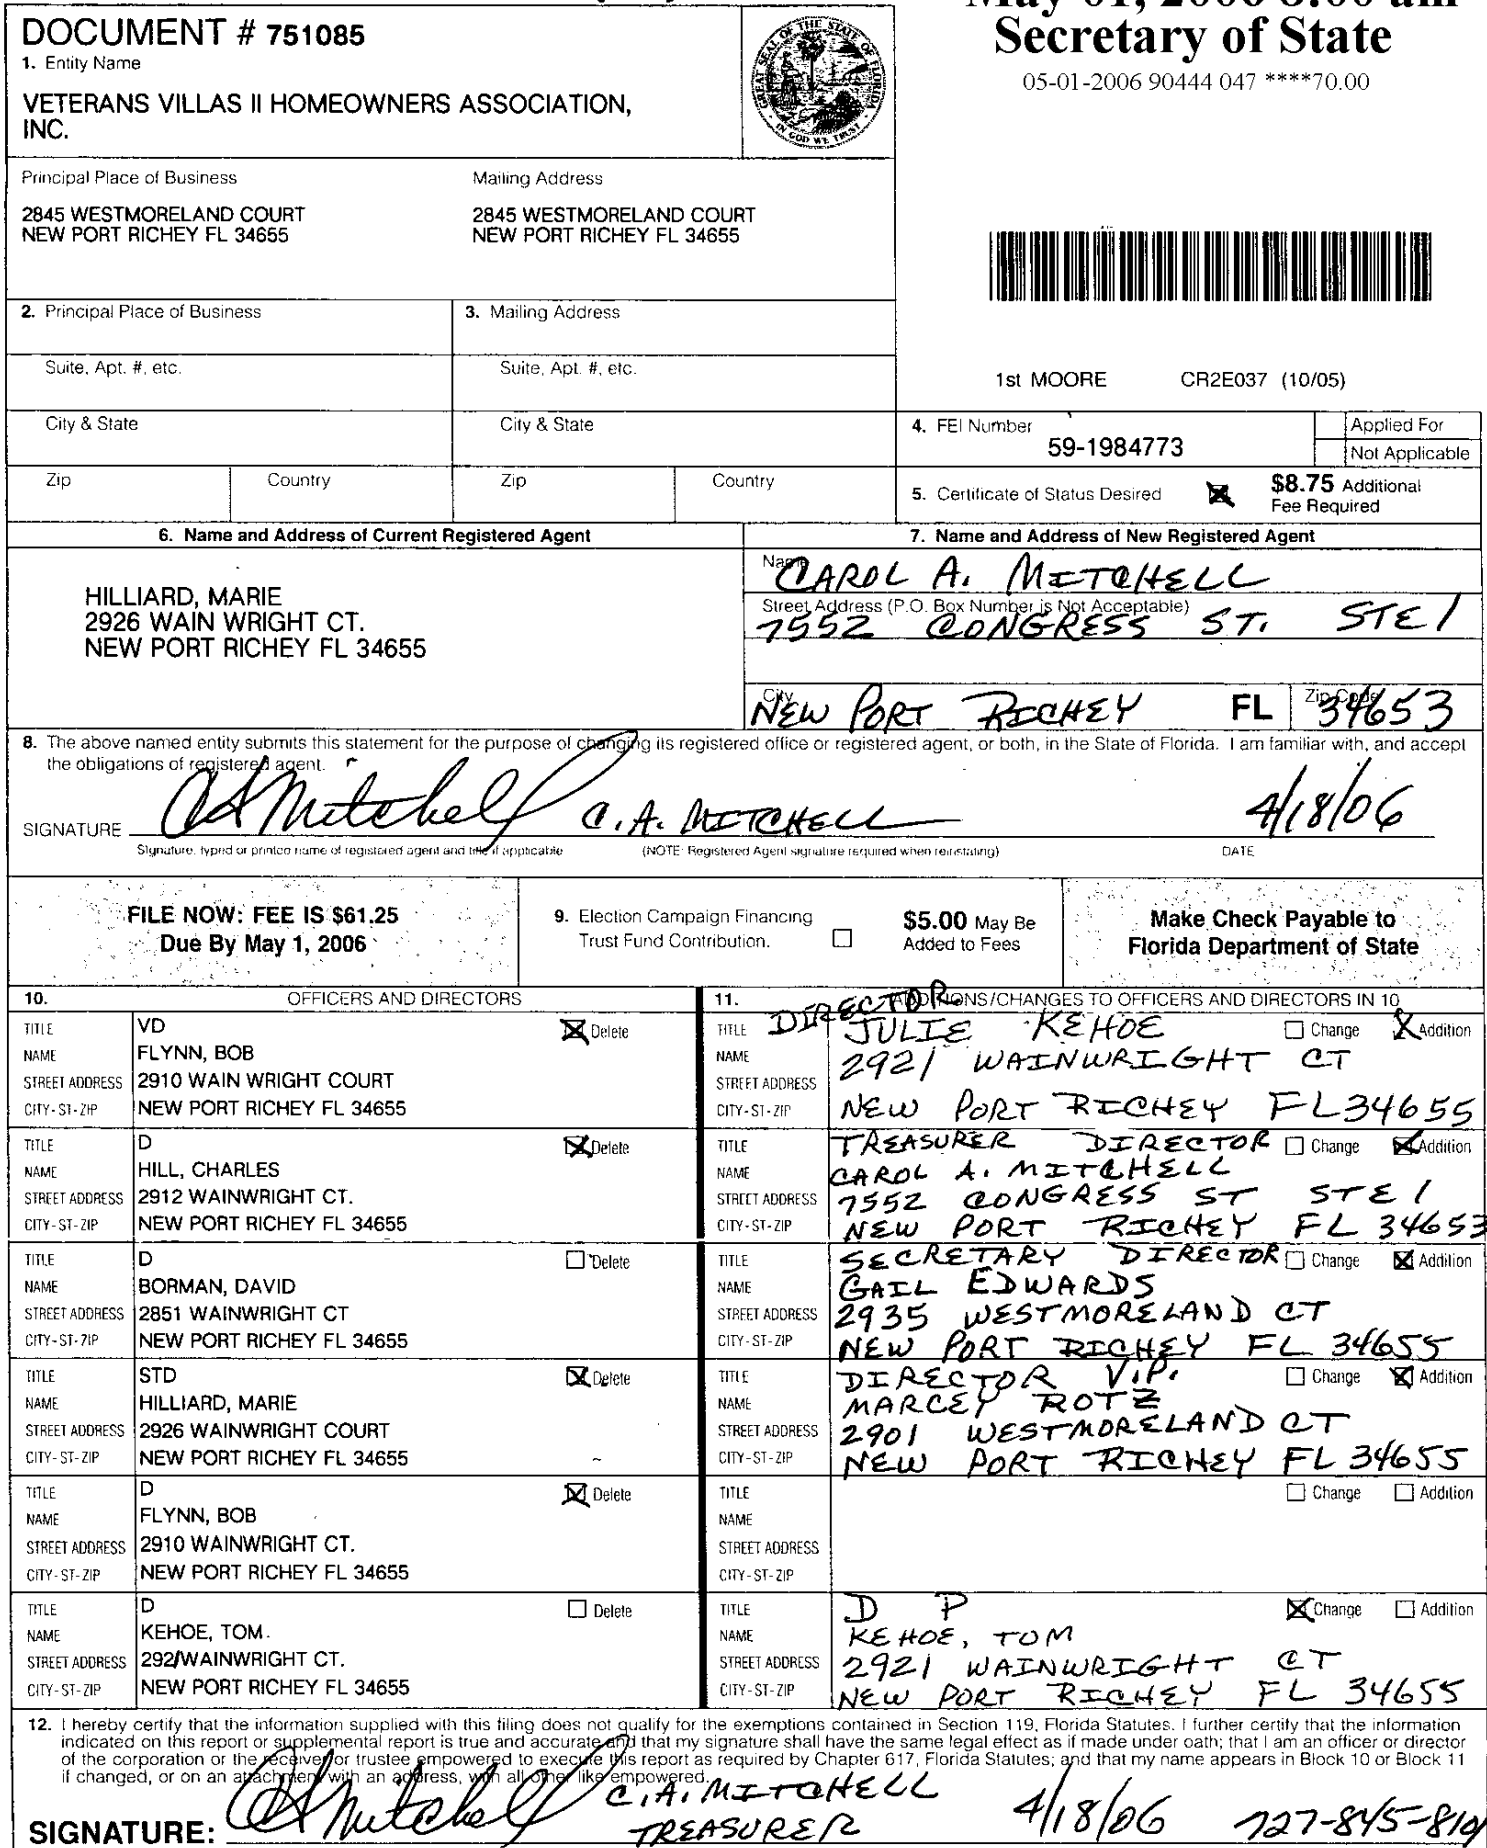 Secretary of State
05-01-2006 90444 047 ****70.00
DOCUMENT # 751085
1. Entity Name
VETERANS VILLAS II HOMEOWNERS ASSOCIATION,
INC.
GREAT SEAL OF THE STATE OF FLORIDA
IN GOD WE TRUST
Principal Place of Business Mailing Address
2845 WESTMORELAND COURT 2845 WESTMORELAND COURT
NEW PORT RICHEY FL 34655 NEW PORT RICHEY FL 34655
2. Principal Place of Business 3. Mailing Address
Suite, Apt. #, etc. Suite, Apt. #, etc.
1st MOORE CR2E037 (10/05)
City & State City & State
4. FEI Number
59-1984773
Applied For
Not Applicable
Zip Country Zip Country
5. Certificate of Status Desired
$8.75 Additional
Fee Required
6. Name and Address of Current Registered Agent
HILLIARD, MARIE
2926 WAIN WRIGHT CT.
NEW PORT RICHEY FL 34655
7. Name and Address of New Registered Agent
Name CAROL A. MITCHELL
Street Address (P.O. Box Number is Not Acceptable)
7552 CONGRESS ST. STE 1
City NEW PORT RICHEY FL Zip Code 34653
8. The above named entity submits this statement for the purpose of changing its registered office or registered agent, or both, in the State of Florida. I am familiar with, and accept
the obligations of registered agent.
SIGNATURE CA Mitchell C.A. MITCHELL 4/18/06
Signature, typed or printed name of registered agent and title if applicable (NOTE: Registered Agent signature required when reinstating) DATE
FILE NOW: FEE IS $61.25
Due By May 1, 2006
9. Election Campaign Financing
Trust Fund Contribution.
$5.00 May Be
Added to Fees
Make Check Payable to
Florida Department of State
10. OFFICERS AND DIRECTORS
TITLE VD Delete
NAME FLYNN, BOB
STREET ADDRESS 2910 WAIN WRIGHT COURT
CITY-ST-ZIP NEW PORT RICHEY FL 34655
TITLE D Delete
NAME HILL, CHARLES
STREET ADDRESS 2912 WAINWRIGHT CT.
CITY-ST-ZIP NEW PORT RICHEY FL 34655
TITLE D Delete
NAME BORMAN, DAVID
STREET ADDRESS 2851 WAINWRIGHT CT
CITY-ST-ZIP NEW PORT RICHEY FL 34655
TITLE STD Delete
NAME HILLIARD, MARIE
STREET ADDRESS 2926 WAINWRIGHT COURT
CITY-ST-ZIP NEW PORT RICHEY FL 34655
TITLE D Delete
NAME FLYNN, BOB
STREET ADDRESS 2910 WAINWRIGHT CT.
CITY-ST-ZIP NEW PORT RICHEY FL 34655
TITLE D Delete
NAME KEHOE, TOM.
STREET ADDRESS 292/WAINWRIGHT CT.
CITY-ST-ZIP NEW PORT RICHEY FL 34655
11. ADDITIONS/CHANGES TO OFFICERS AND DIRECTORS IN 10
DIRECTOR
TITLE JULIE KEHOE Change Addition
NAME 2921 WAINWRIGHT CT
STREET ADDRESS
CITY-ST-ZIP NEW PORT RICHEY FL 34655
TITLE TREASURER DIRECTOR Change Addition
NAME CAROL A. MITCHELL
STREET ADDRESS 7552 CONGRESS ST STE 1
CITY-ST-ZIP NEW PORT RICHEY FL 34653
TITLE SECRETARY DIRECTOR Change Addition
NAME GAIL EDWARDS
STREET ADDRESS 2935 WESTMORELAND CT
CITY-ST-ZIP NEW PORT RICHEY FL 34655
TITLE DIRECTOR V.P. Change Addition
NAME MARCEY ROTZ
STREET ADDRESS 2901 WESTMORELAND CT
CITY-ST-ZIP NEW PORT RICHEY FL 34655
TITLE Change Addition
NAME
STREET ADDRESS
CITY-ST-ZIP
TITLE D P Change Addition
NAME KEHOE, TOM
STREET ADDRESS 2921 WAINWRIGHT CT
CITY-ST-ZIP NEW PORT RICHEY FL 34655
12. I hereby certify that the information supplied with this filing does not qualify for the exemptions contained in Section 119, Florida Statutes. I further certify that the information
indicated on this report or supplemental report is true and accurate and that my signature shall have the same legal effect as if made under oath; that I am an officer or director
of the corporation or the receiver or trustee empowered to execute this report as required by Chapter 617, Florida Statutes; and that my name appears in Block 10 or Block 11
if changed, or on an attachment with an address, with all other like empowered.
SIGNATURE: CA Mitchell C.A. MITCHELL 4/18/06
TREASURER